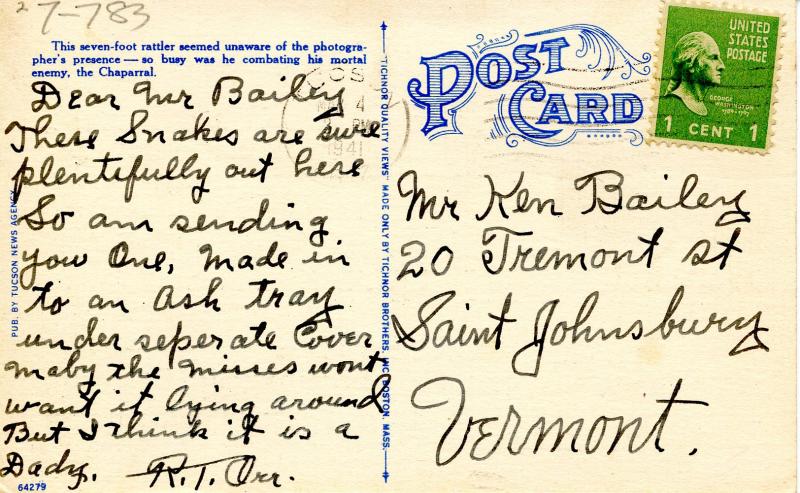 27-783
This seven-foot rattler seemed unaware of the photogra-
pher's presence — so busy was he combating his mortal
enemy, the Chaparral.
Dear Mr Bailey
These Snakes are sure
plentifully out here
So am sending
you One, made in
to an Ash tray
under seperate Cover
maby the misses wont
want it lying around
But I think it is a
Dady. R.T. Orr.
64279
PUB. BY TUCSON NEWS AGENCY
"TICHNOR QUALITY VIEWS" MADE ONLY BY TICHNOR BROTHERS, INC. BOSTON, MASS.
POST CARD
4
PM
1941
UNITED
STATES
POSTAGE
GEORGE
WASHINGTON
1789-1797
1 CENT 1
Mr Ken Bailey
20 Tremont st
Saint Johnsbury
Vermont.